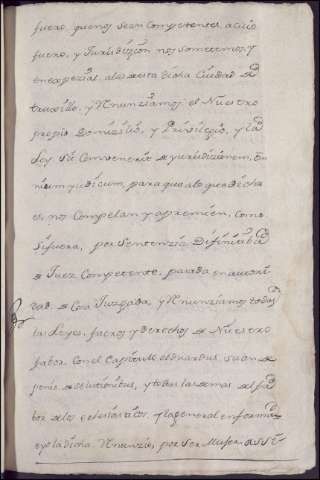 fuero, que nos sean Competentes, a cuio
fuero, y Jurisdizion nos sometemos, y
en expezial a los de esta dicha Ciudad de
truxillo, y Rnunziamos el Nuestro
propio Domizilio, y Privilegio, y la
Ley Sit Convenerit de jurisdizionem, Om
nium judicum, para que a lo que dicho
es, nos Compelan y apremien, Como
si fuera, por Sentenzia Difinitiba
de Juez Competente, pasada en autori
dad de Cosa Juzgada, y Rnunziamos todas
las Leyes, fueros y Derechos de Nuestro
fabor Con el Capitulo obduardus, suan de
penis, de solutionibus, y todas las demas del fa
bor de los eclesiasticos, y la general en forma
e yo la dicha, Rnunzio, por Ser Muger